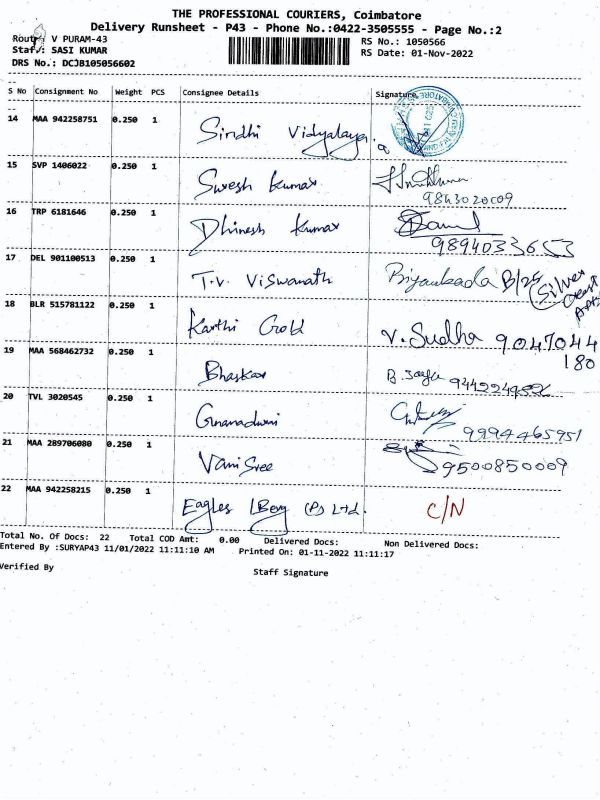 THE PROFESSIONAL COURIERS, Coimbatore
Delivery Runsheet - P43 - Phone No.:0422-3505555 - Page No.:2
Route: V PURAM-43 RS No.: 1050566
Staff: SASI KUMAR RS Date: 01-Nov-2022
DRS No.: DCJB105056602
S No Consignment No Weight PCS Consignee Details Signature
14 MAA 942258751 0.250 1 Sindhi Vidyalaya
15 SVP 1406022 0.250 1 Suresh Kumar
9843020009
16 TRP 6181646 0.250 1 Dhinesh Kumar
9894033653
17 DEL 901100513 0.250 1 T.V. Viswanath Priyankada B/25
Silver
Crest
Apts
18 BLR 515781122 0.250 1 Karthi Gold V. Sudha 9047044
180
19 MAA 568462732 0.250 1 Bhaskar B.
20 TVL 3020545 0.250 1 Gnanadwini
9994465951
21 MAA 289706080 0.250 1 Vani Sree
9500850009
22 MAA 942258215 0.250 1 Eagles (P) Ltd. C/N
Total No. Of Docs: 22 Total COD Amt: 0.00 Delivered Docs: Non Delivered Docs:
Entered By :SURYAP43 11/01/2022 11:11:10 AM Printed On: 01-11-2022 11:11:17
Verified By Staff Signature